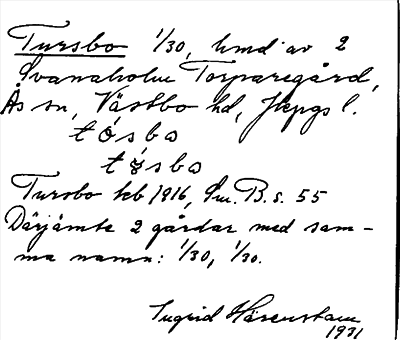 Tursbo 1/30, hmd av 2
Svanaholm Torparegård,
Ås sn, Västbo hd, Jkpgs l.
tósba
Tursbo kb 1916, Sm. B. s. 55
Därjämte 2 gårdar med sam-
ma namn: 1/30, 1/30.
Ingrid Härenstam
1931